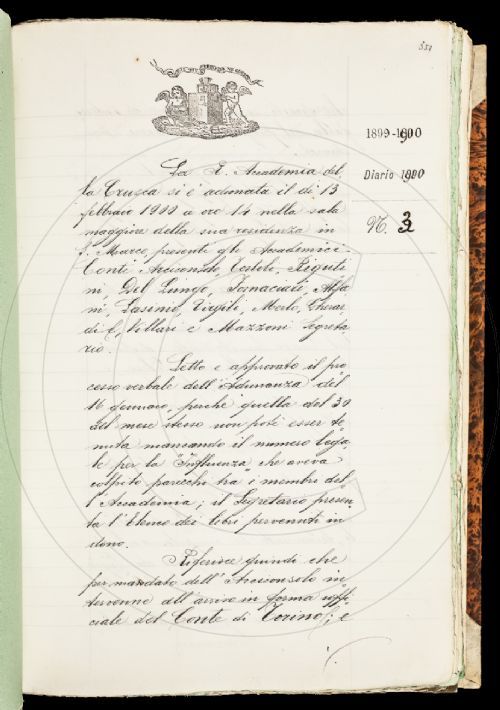 551
1899-1900
Diario 1900
N. 3
La R. Accademia del
la Crusca si è adunata il dì 13
febbraio 1900 a ore 14 nella sala
maggiore della sua residenza in
S. Marco, presenti gli Accademici
Conti Arciconsolo, Tortoli, Riguti
ni, Del Lungo, Tornaciati, Alfa
ni, Lasinio, Virgili, Merlo, Gherar
di C, Villari e Mazzoni Segreta
rio.
Letto e approvato il pro
cesso verbale dell'Adunanza del
16 gennaio, perchè quella del 30
del mese stesso non potè esser te
nuta mancando il numero lega
le per la "Influenza" che aveva
colpito parecchi tra i membri del
l'Accademia; il Segretario presen
ta l'Elenco dei libri pervenuti in
dono.
Riferisce quindi che
per mandato dell'Arciconsolo in
tervenne all'arrivo in forma uffi
ciale del Conte di Torino; e